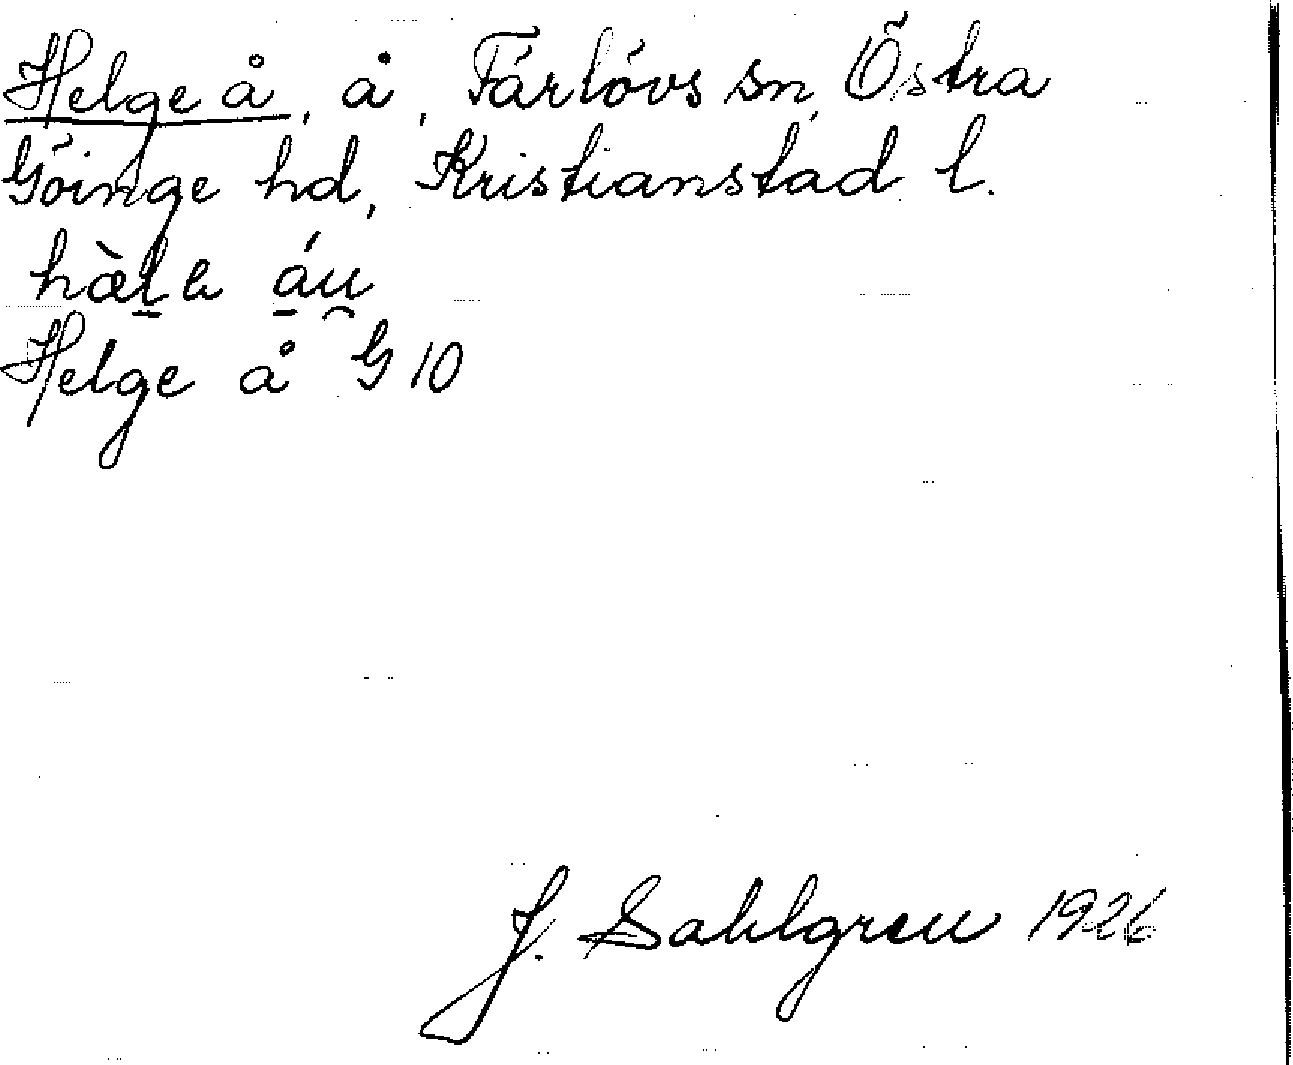 Helge å, å, Färlövs sn, Östra
Göinge hd, Kristianstad l.
Helge å G 10
J. Sahlgren 1926